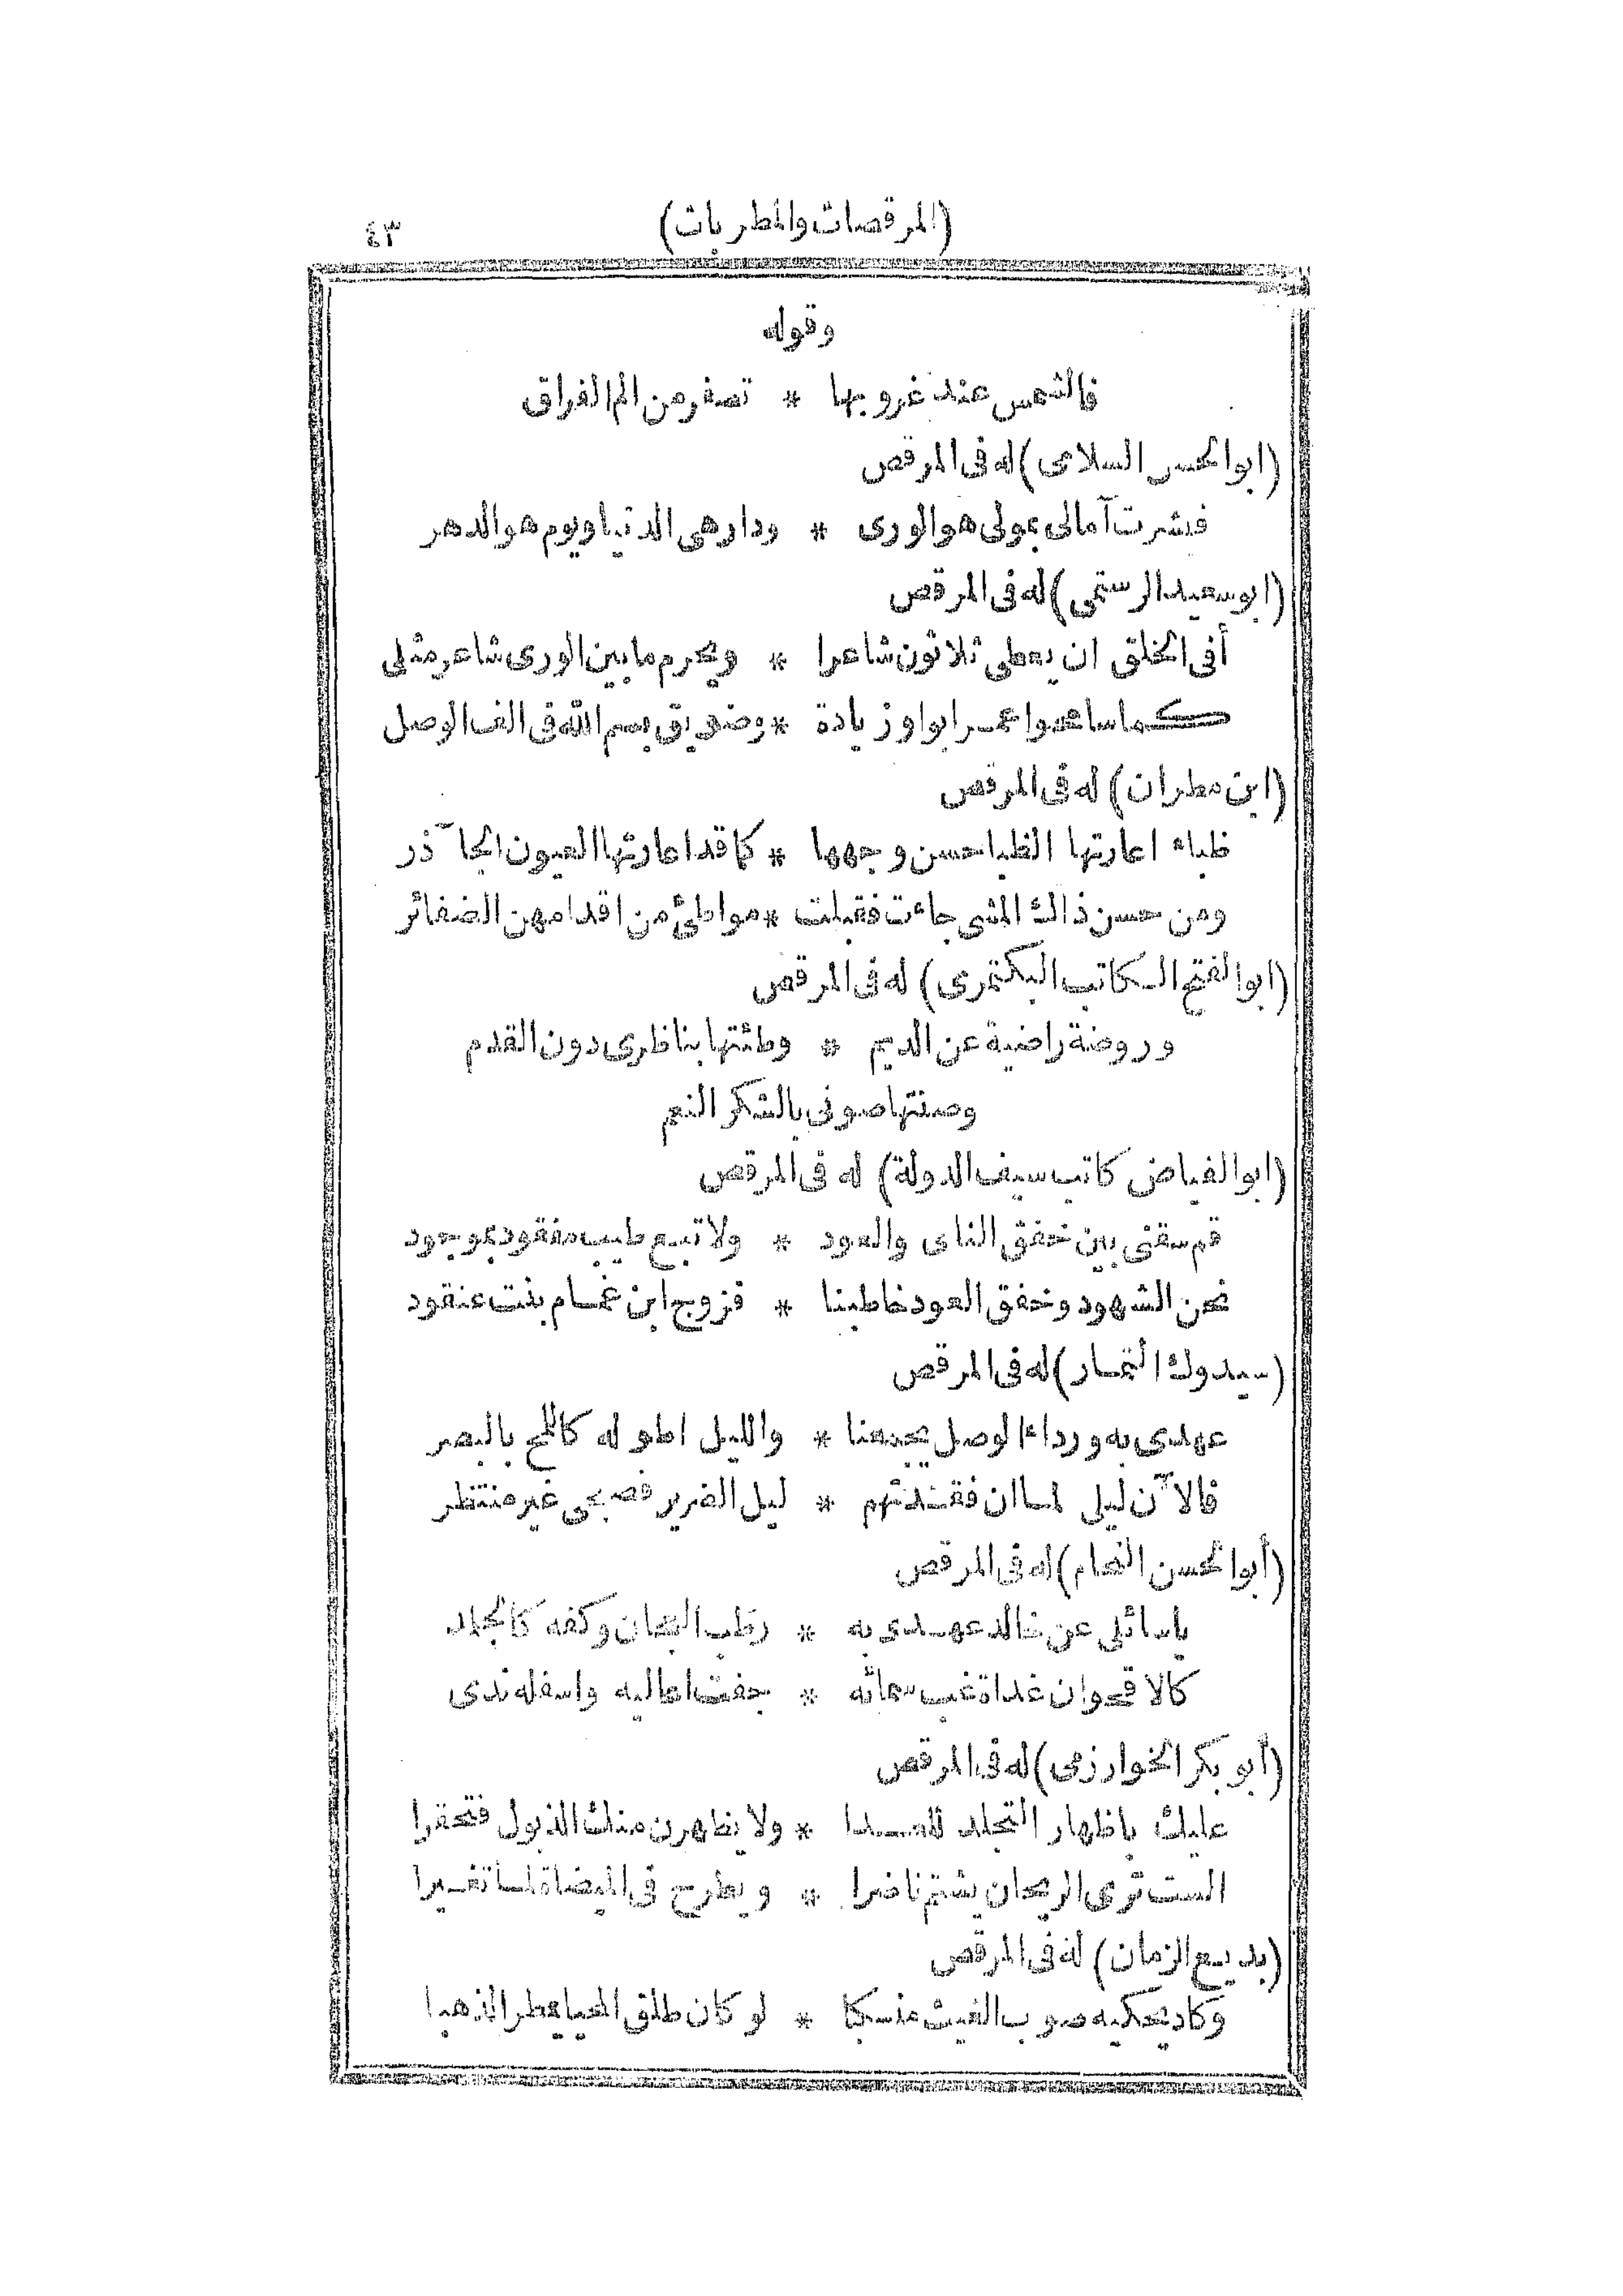 (المرقصات والمطربات) ٤٣
وقوله
فالشمس عند غروبها * تصفر من الم الفراق
(ابو الحسن السلامى) له فى المرقص
فبشرت آمالى بمولى هو الورى * ودار هى الدنيا ويوم هو الدهر
(ابو سعيد الرستمى) له فى المرقص
أفى الخلق ان يعطى ثلاثون شاعرا * ويحرم ما بين الورى شاعر مثلى
كما سامحوا عمرا بواو زيادة * وضويق بسم الله فى الف الوصل
(ابن مطران) له فى المرقص
ظباء اعارتها الظبا حسن وجهها * كما قد اعارتها العيون الجآذر
ومن حسن ذاك المشى جاءت فقبلت * مواطئ من اقدامهن الضفائر
(ابو الفتح الكاتب البكتمرى) له فى المرقص
وروضة راضية عن الديم * وطئتها بناظرى دون القدم
وصنتها صونى بالشكر النعم
(ابو الفياض كاتب سيف الدولة) له فى المرقص
قم سقنى بين خفق الناى والعود * ولا تبع طيب مفقود بموجود
نحن الشهود وخفق العود خاطبنا * فزوج ابن غمام بنت عنقود
(سيدوك التمار) له فى المرقص
عهدى به ورداء الوصل يجمعنا * والليل اطوله كاللمح بالبصر
فالآن ليلى لما ان فقدتهم * ليل الضرير فصبحى غير منتظر
(أبو الحسن اللحام) له فى المرقص
يا سائلى عن خالد عهدى به * رطب العجان وكفه كالجلمد
كالاقحوان غداة غب سمائه * جفت اعاليه واسفله ندى
(أبو بكر الخوارزمى) له فى المرقص
عليك باظهار التجلد للعدا * ولا يظهرن منك الذبول فتحقرا
الست ترى الريحان يشتم ناضرا * ويطرح فى الميضاة لما تغيرا
(بديع الزمان) له فى المرقص
وكاد يحكيه صوب الغيث منسكبا * لو كان طلق المحيا يمطر الذهبا